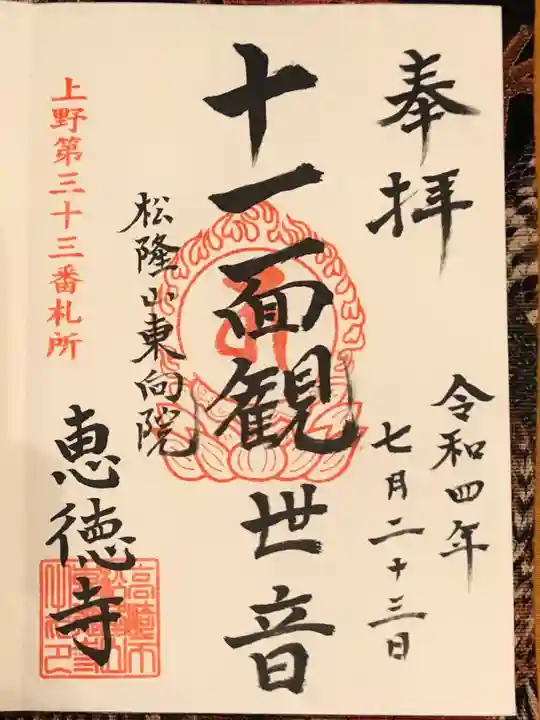 奉拝
令和四年
七月二十三日
十一面観世音
松隆山東向院
上野第三十三番札所
恵徳寺